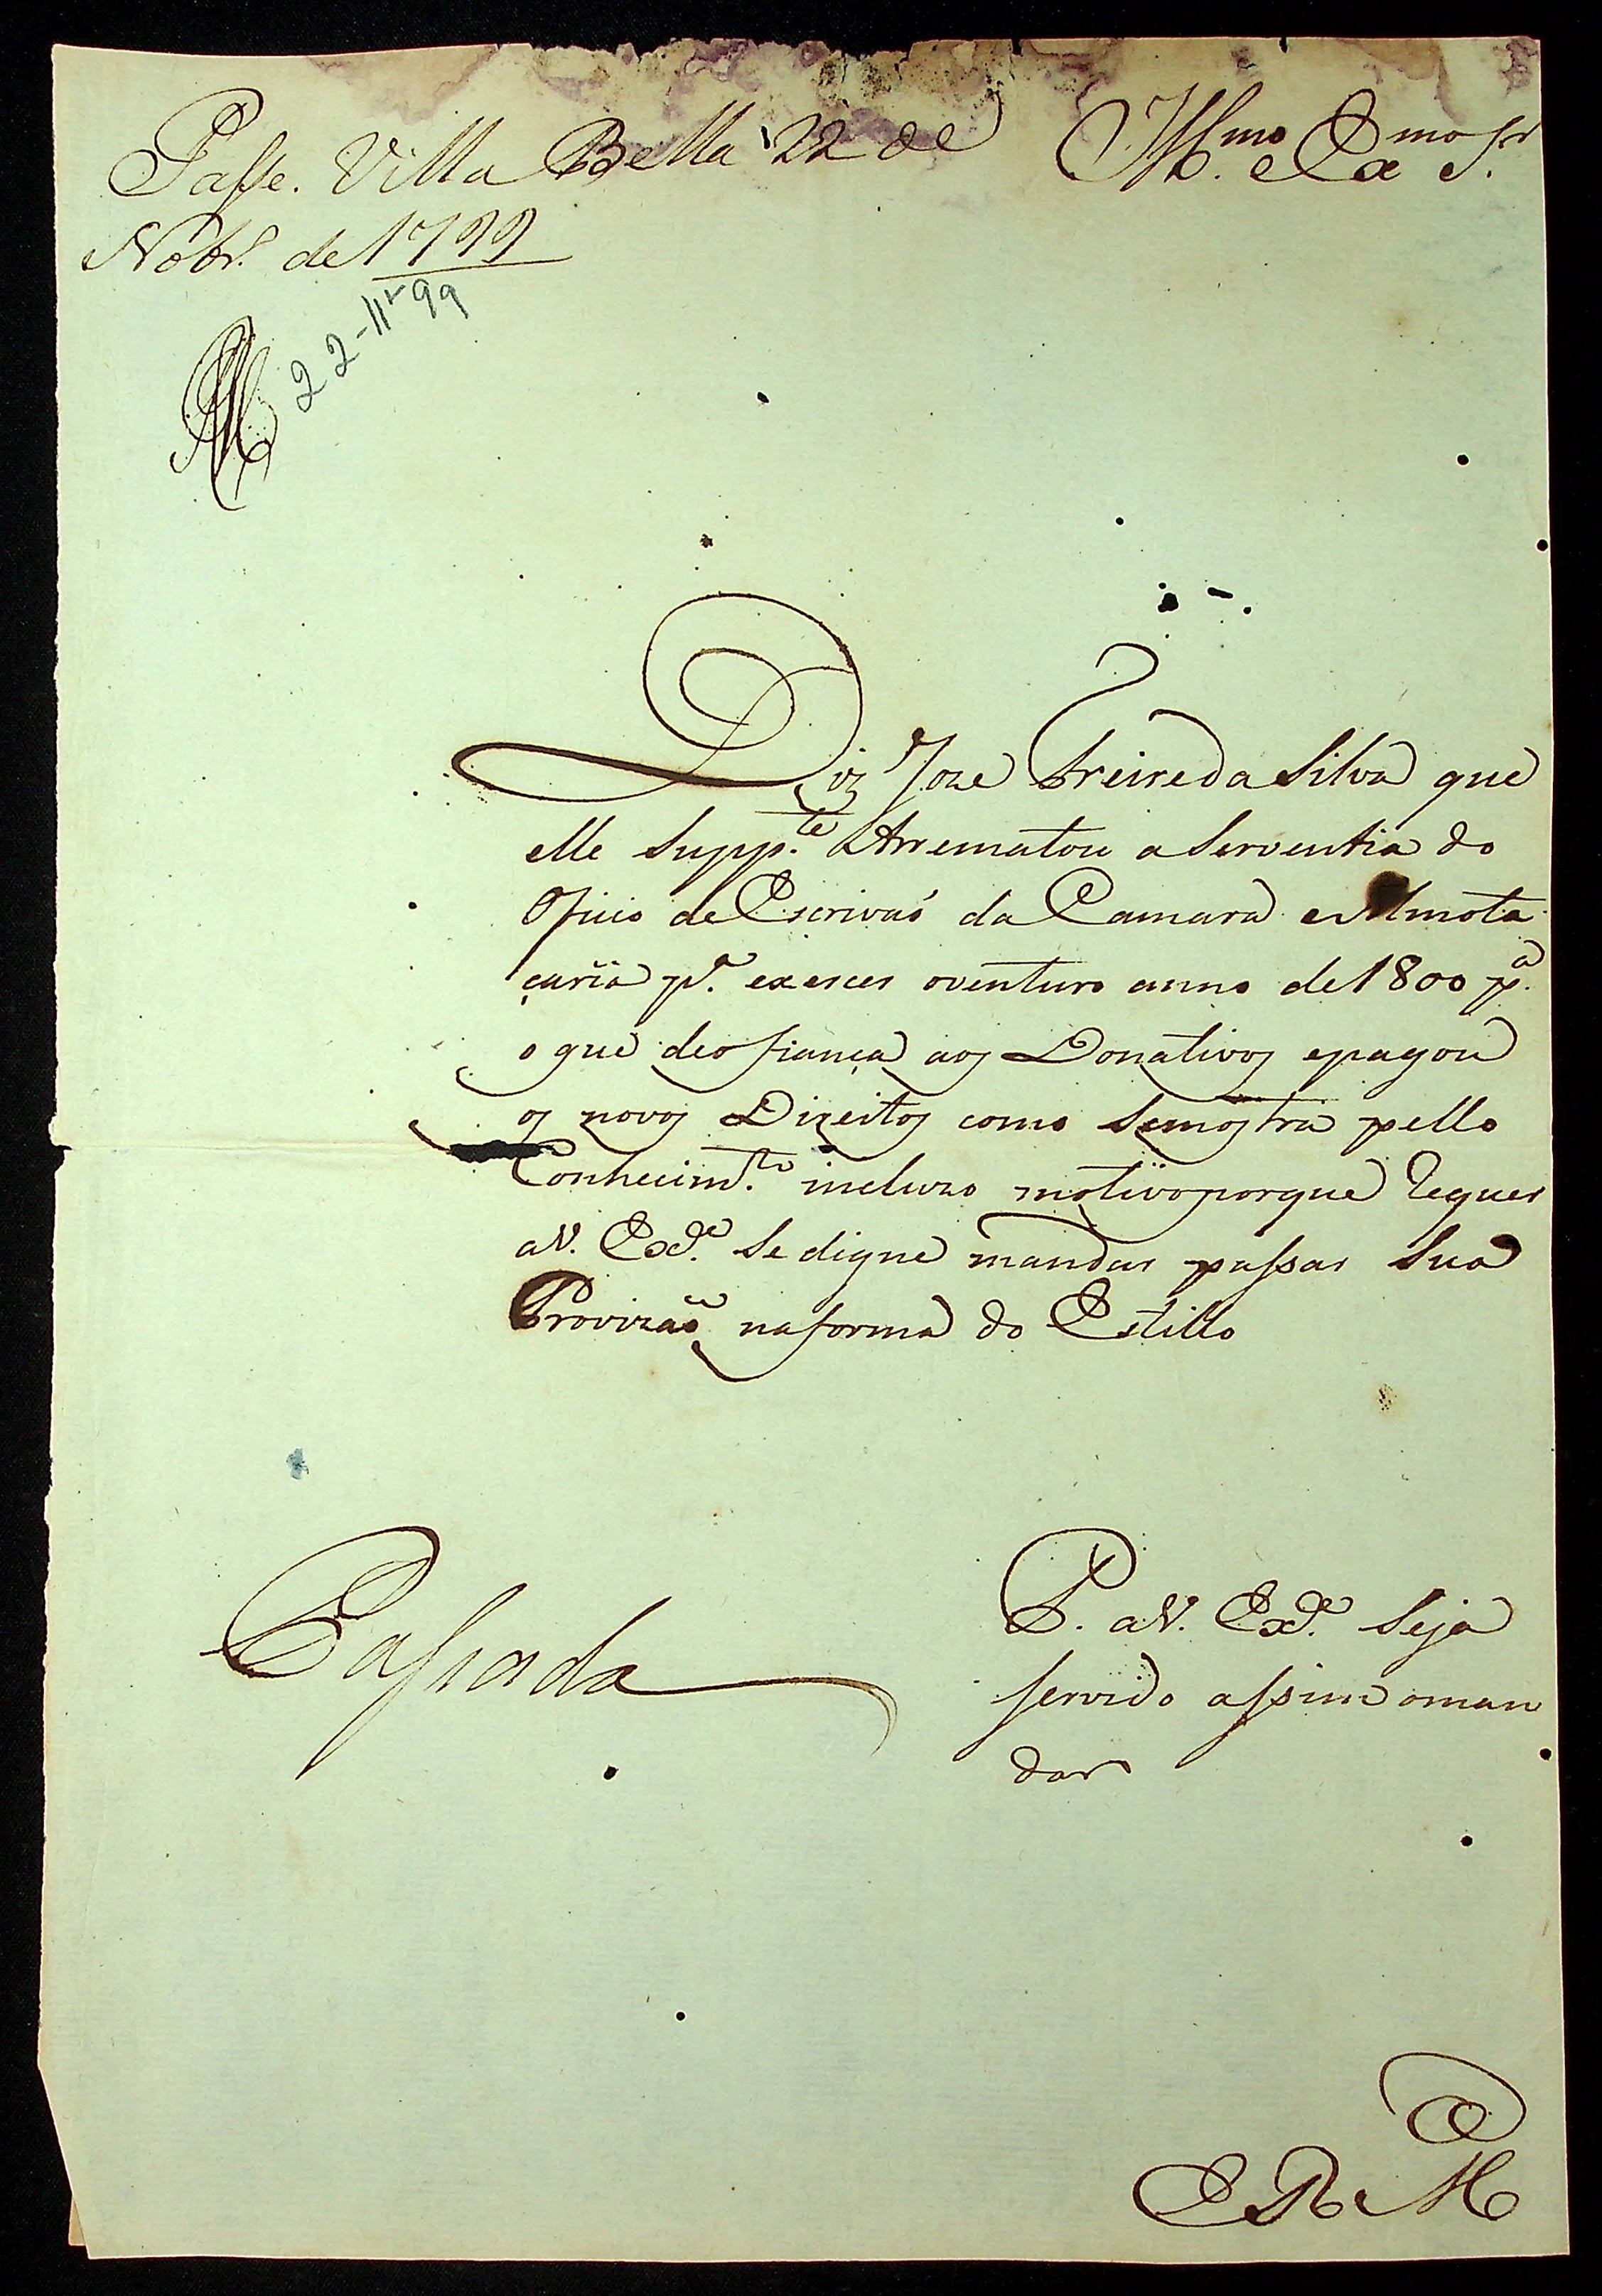 Passe. Villa Bella 22 de
Nobr.º de 1799
22-11-99
Illmo. e Exmo Sr.
Diz Joze Freire da Silva que
elle Supp.te Arrematou a Serventia do
Oficio de Escrivaó da Camara e Almota
çaria p.ª exercer o venturo anno de 1800 p.ª
o que deo fiança aos Donativos e pagou
os novos Direitos como Semostra pello
Conhecim.to incluzo motivo porque Requer
a V. Exc.ª Se digne mandar passar Sua
Provizaõ na forma do Estillo
Passada
P. a V. Exc.ª Seja
servido assim o man
dar
E R M